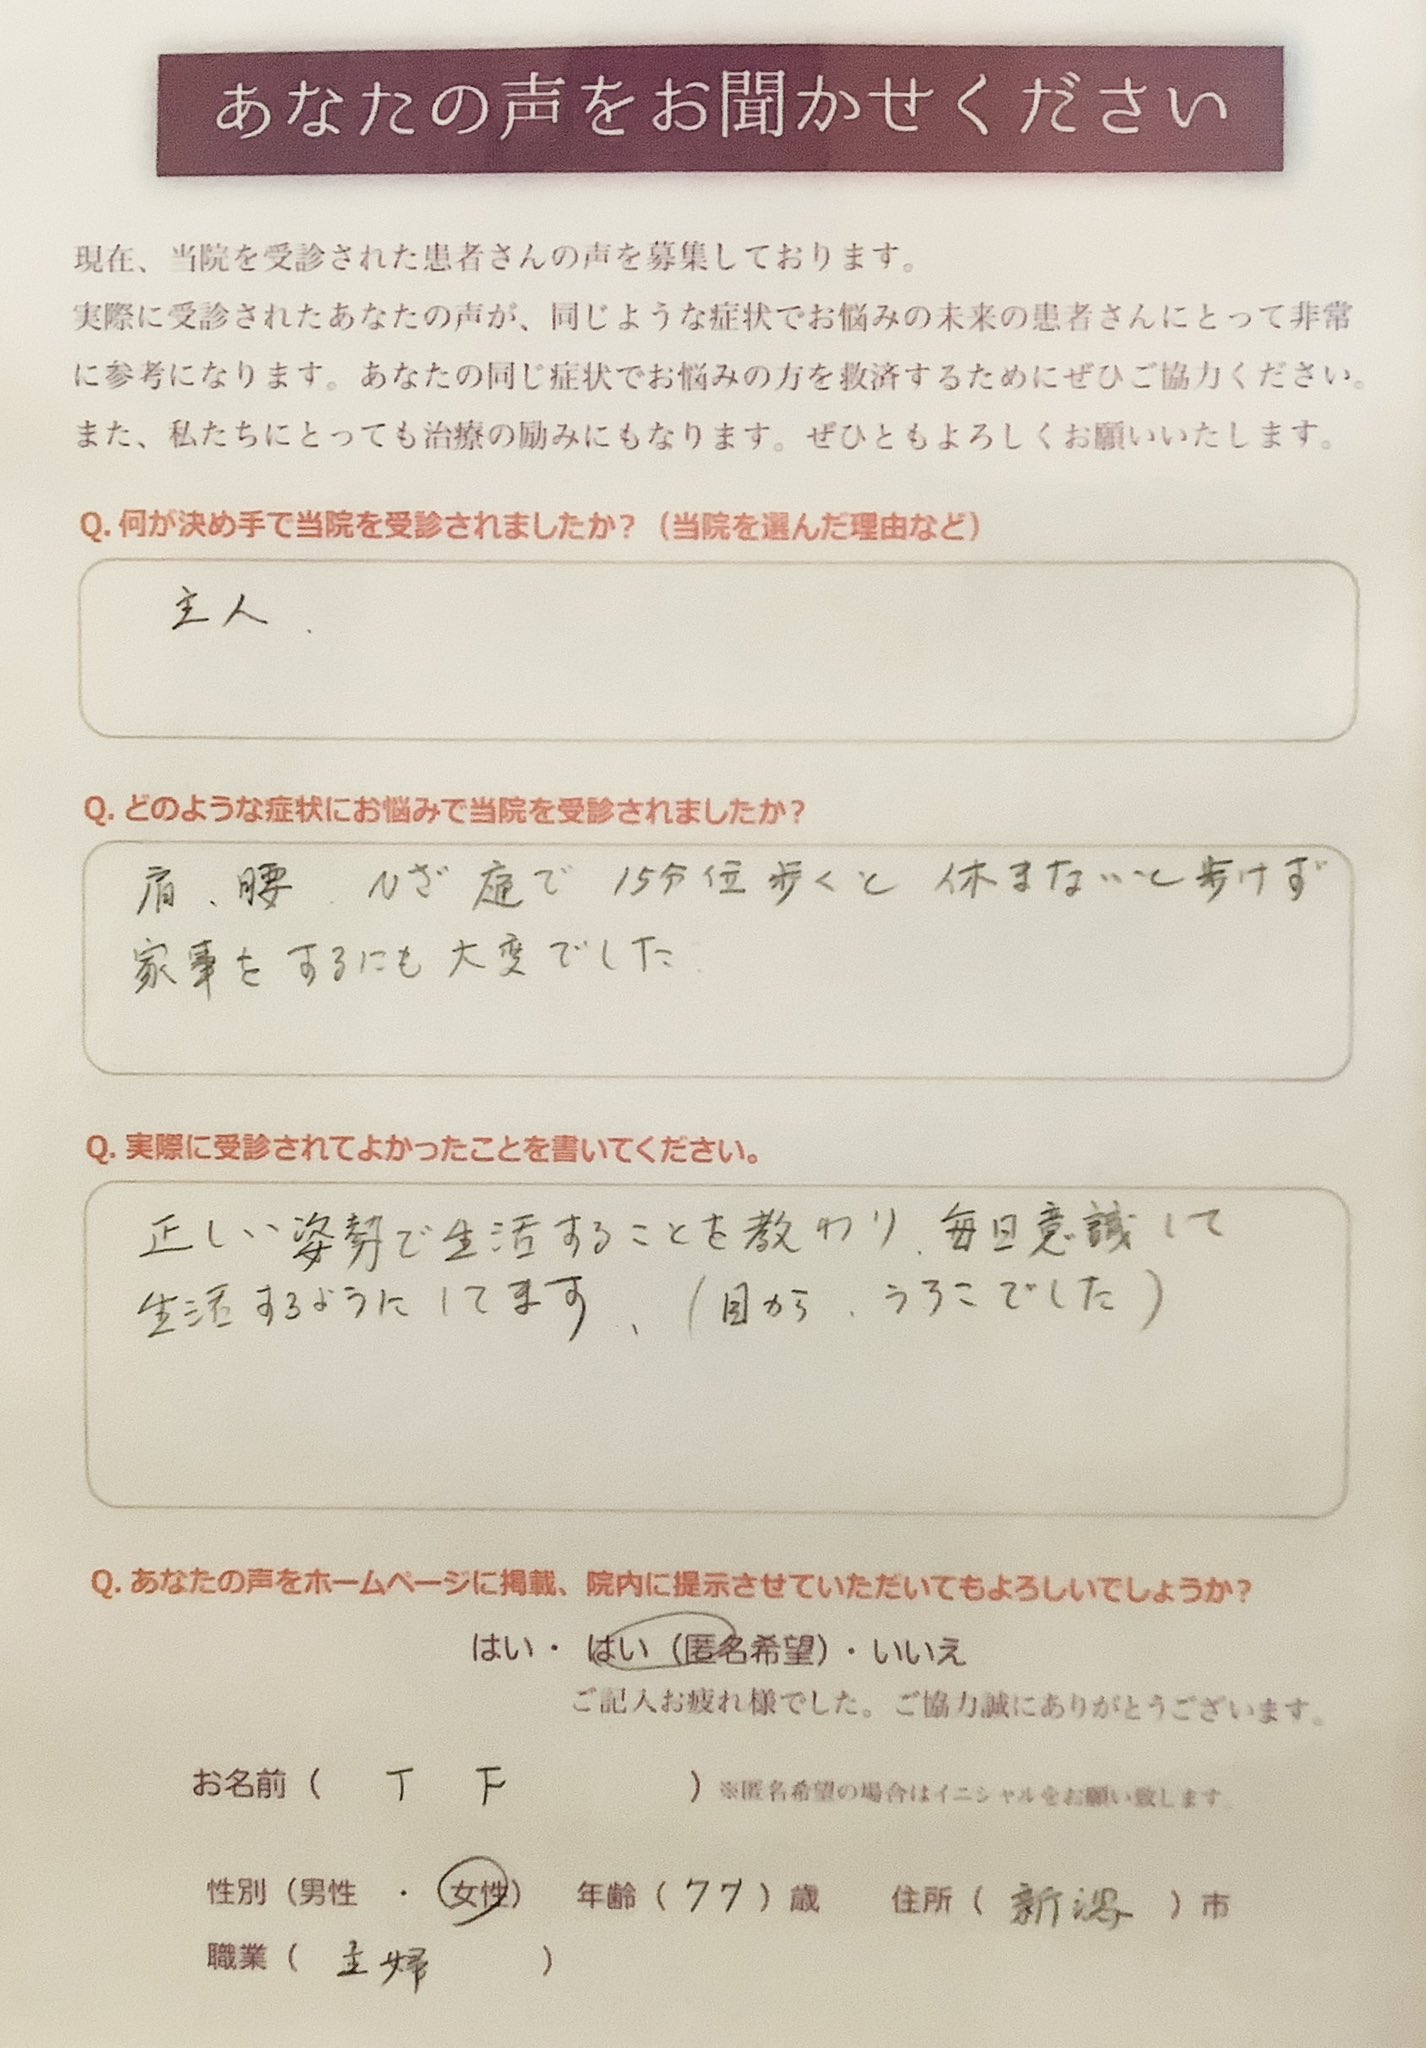 あなたの声をお聞かせください
現在、当院を受診された患者さんの声を募集しております。
実際に受診されたあなたの声が、同じような症状でお悩みの未来の患者さんにとって非常
に参考になります。あなたの同じ症状でお悩みの方を救済するためにぜひご協力ください。
また、私たちにとっても治療の励みにもなります。ぜひともよろしくお願いいたします。
Q. 何が決め手で当院を受診されましたか？（当院を選んだ理由など）
主人.
Q. どのような症状にお悩みで当院を受診されましたか？
肩、腰、ひざ 痛で 15分位歩くと 休まないと歩けず
家事をするにも大変でした
Q. 実際に受診されてよかったことを書いてください。
正しい姿勢で生活することを教わり、毎日意識して
生活するようにしてます、(目から、うろこでした)
Q. あなたの声をホームページに掲載、院内に提示させていただいてもよろしいでしょうか？
はい・ はい（匿名希望）・いいえ
ご記入お疲れ様でした。ご協力誠にありがとうございます。
お名前（ T F ）※匿名希望の場合はイニシャルをお願い致します。
性別（男性 ・ 女性） 年齢（77）歳 住所（新潟）市
職業（主婦）